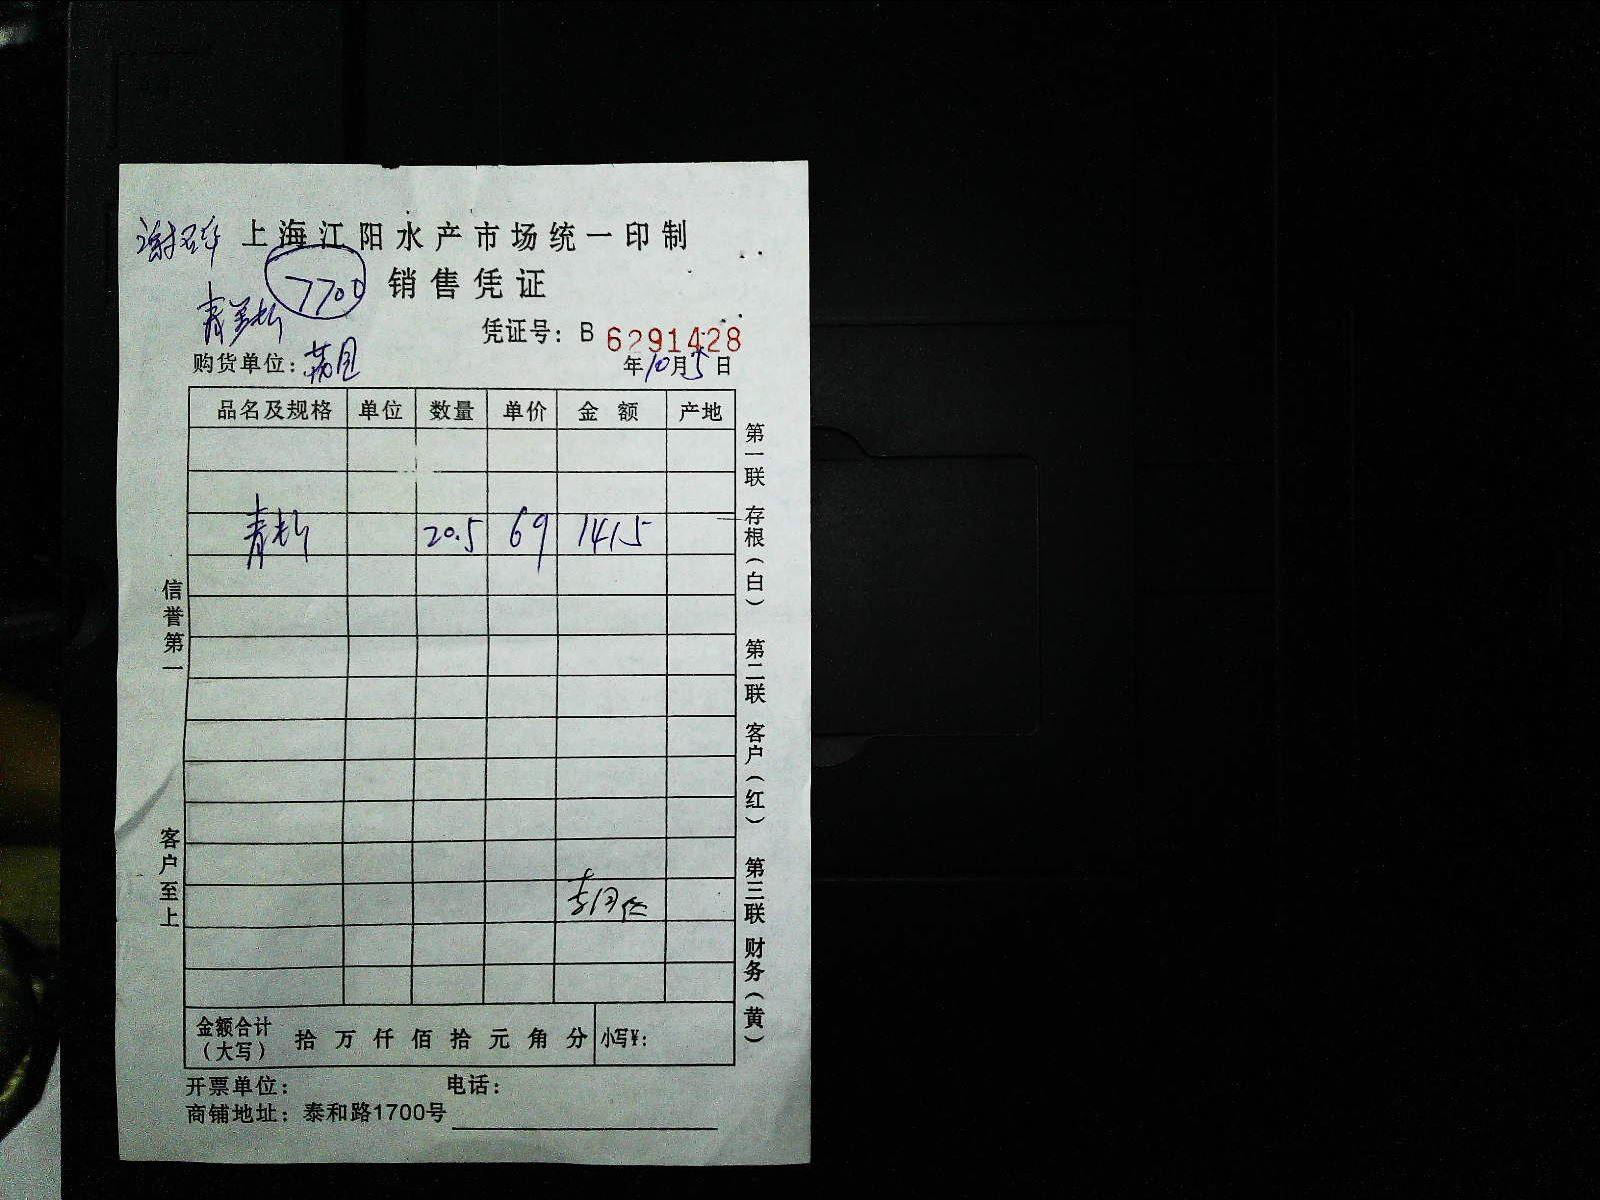 上海江阳水产市场统一印制
7700 销售凭证
凭证号：B 6291428
购货单位： 年10月5日
品名及规格 单位 数量 单价 金额 产地
20.5 69 1415
信誉第一
客户至上
第一联 存根（白） 第二联 客户（红） 第三联 财务（黄）
金额合计（大写） 拾 万 仟 佰 拾 元 角 分 小写¥：
开票单位： 电话：
商铺地址：泰和路1700号